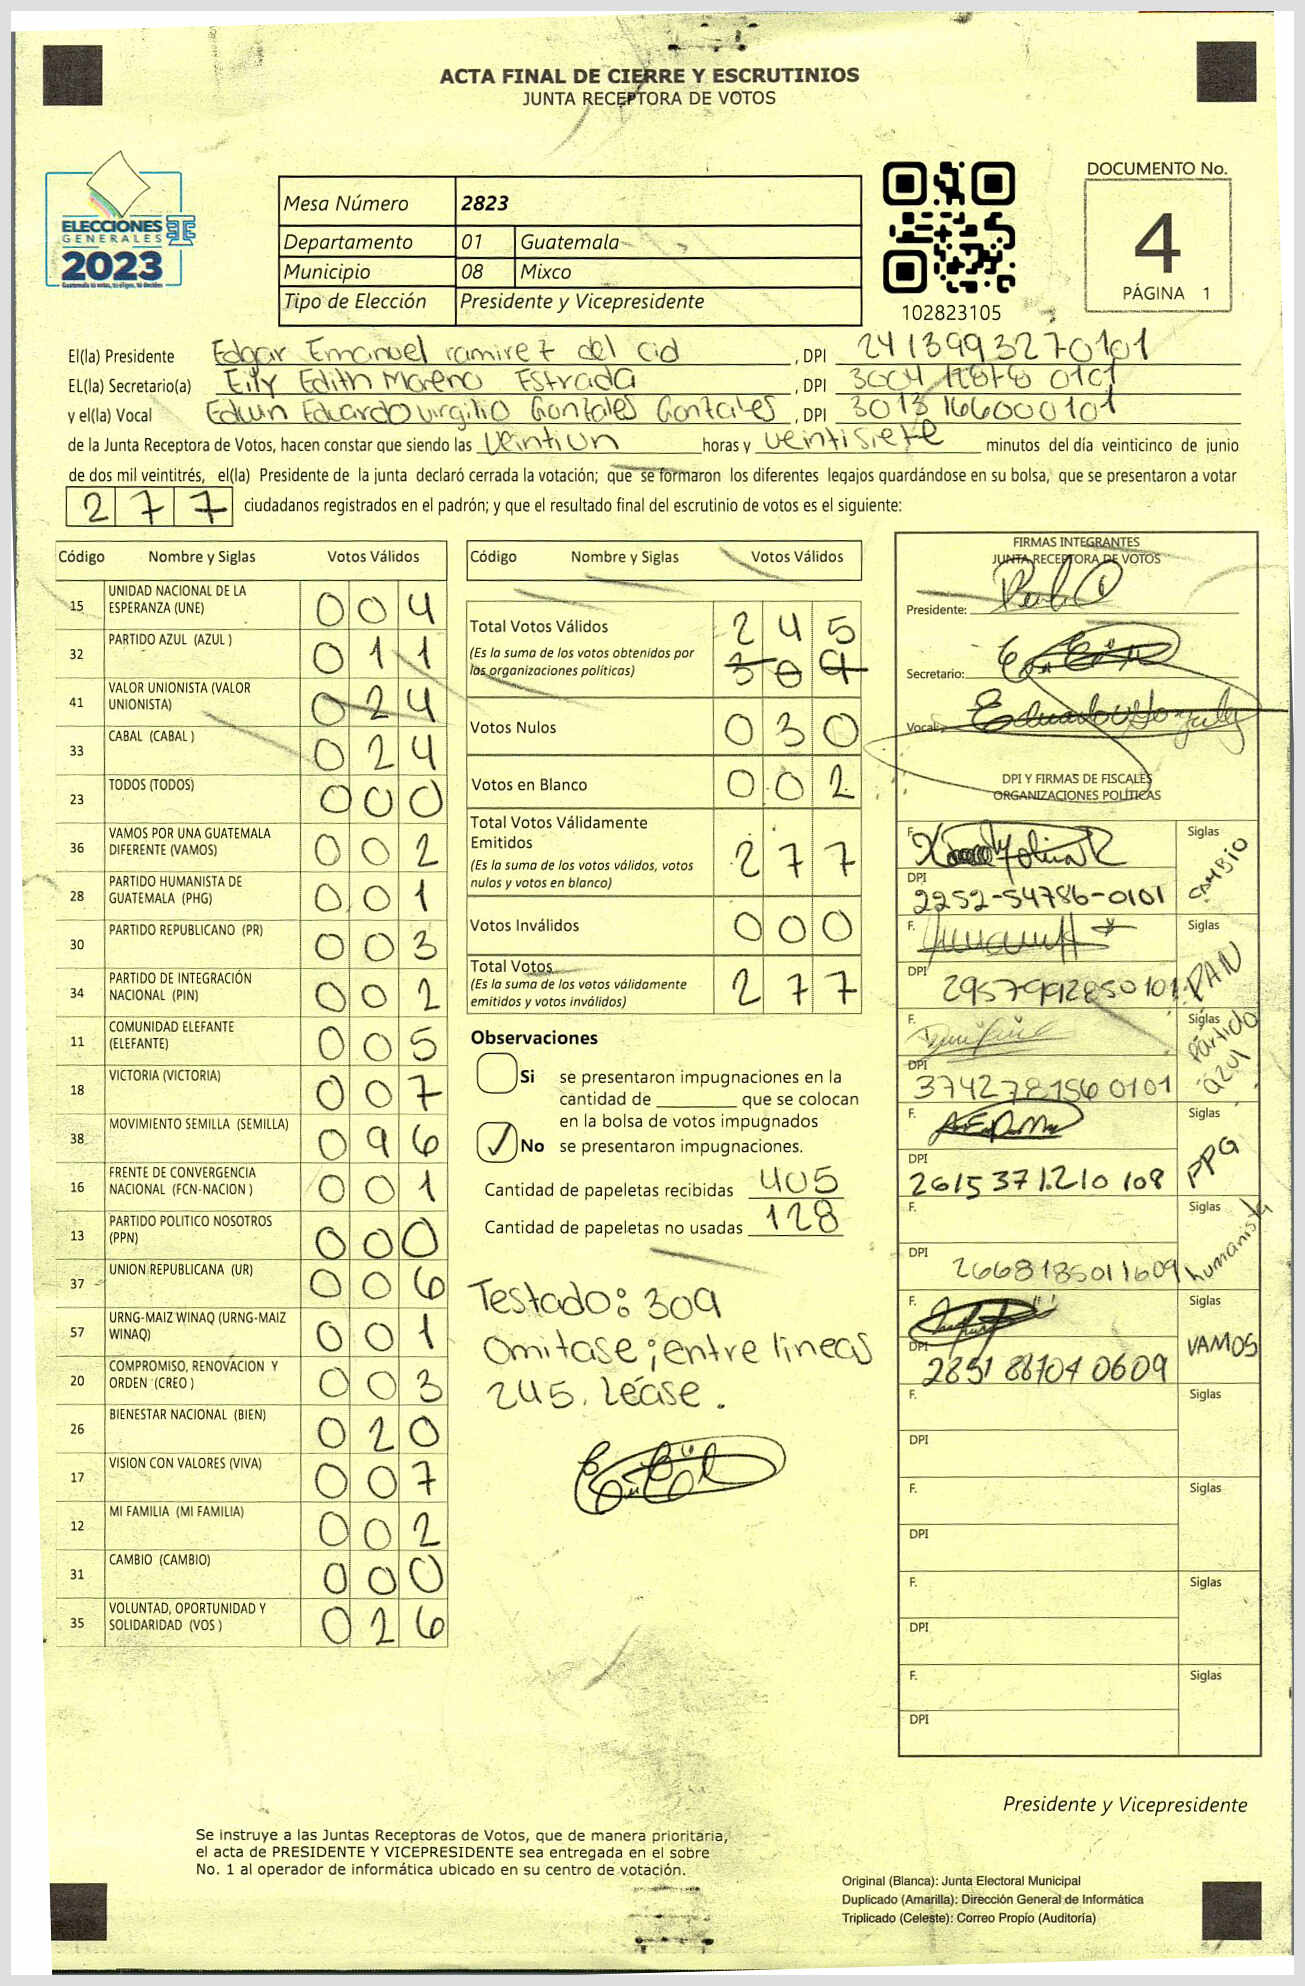 ACTA FINAL DE CIERRE Y ESCRUTINIOS
JUNTA RECEPTORA DE VOTOS
ELECCIONES
GENERALES
2023
Mesa Número 2823
Departamento 01 Guatemala
Municipio 08 Mixco
Tipo de Elección Presidente y Vicepresidente
102823105
DOCUMENTO No.
4
PÁGINA 1
El(la) Presidente Edgar Emanuel ramirez del cid , DPI 2413993270101
EL(la) Secretario(a) Eily Edith Moreno Estrada , DPI
y el(la) Vocal Edwin Eduardo virgilio Gonzales Gonzales , DPI 3013166000101
de la Junta Receptora de Votos, hacen constar que siendo las veintiun horas y veintisiete minutos del día veinticinco de junio
de dos mil veintitrés, el(la) Presidente de la junta declaró cerrada la votación; que se formaron los diferentes legajos quardándose en su bolsa, que se presentaron a votar
277 ciudadanos registrados en el padrón; y que el resultado final del escrutinio de votos es el siguiente:
Código Nombre y Siglas Votos Válidos
15 UNIDAD NACIONAL DE LA ESPERANZA (UNE) 004
32 PARTIDO AZUL (AZUL ) 011
41 VALOR UNIONISTA (VALOR UNIONISTA) 024
33 CABAL (CABAL ) 024
23 TODOS (TODOS) 000
36 VAMOS POR UNA GUATEMALA DIFERENTE (VAMOS) 002
28 PARTIDO HUMANISTA DE GUATEMALA (PHG) 001
30 PARTIDO REPUBLICANO (PR) 003
34 PARTIDO DE INTEGRACIÓN NACIONAL (PIN) 002
11 COMUNIDAD ELEFANTE (ELEFANTE) 005
18 VICTORIA (VICTORIA) 007
38 MOVIMIENTO SEMILLA (SEMILLA) 096
16 FRENTE DE CONVERGENCIA NACIONAL (FCN-NACION ) 001
13 PARTIDO POLITICO NOSOTROS (PPN) 000
37 UNION REPUBLICANA (UR) 006
57 URNG-MAIZ WINAQ (URNG-MAIZ WINAQ) 001
20 COMPROMISO, RENOVACION Y ORDEN (CREO ) 003
26 BIENESTAR NACIONAL (BIEN) 020
17 VISION CON VALORES (VIVA) 007
12 MI FAMILIA (MI FAMILIA) 002
31 CAMBIO (CAMBIO) 000
35 VOLUNTAD, OPORTUNIDAD Y SOLIDARIDAD (VOS ) 026
Código Nombre y Siglas Votos Válidos
Total Votos Válidos 245
(Es la suma de los votos obtenidos por
las organizaciones políticas) 309
Votos Nulos 030
Votos en Blanco 002
Total Votos Válidamente
Emitidos 277
(Es la suma de los votos válidos, votos
nulos y votos en blanco)
Votos Inválidos 000
Total Votos 277
(Es la suma de los votos válidamente
emitidos y votos inválidos)
Observaciones
Si se presentaron impugnaciones en la
cantidad de ________ que se colocan
en la bolsa de votos impugnados
✓ No se presentaron impugnaciones.
Cantidad de papeletas recibidas 405
Cantidad de papeletas no usadas 128
Testado: 309
Omitase; entre lineas
245. Léase.
FIRMAS INTEGRANTES
JUNTA RECEPTORA DE VOTOS
Presidente:
Secretario:
Vocal:
DPI Y FIRMAS DE FISCALES
ORGANIZACIONES POLÍTICAS
F. Siglas CAMBIO
DPI 2252-54786-0101
F. Siglas PAN
DPI 2957992850101
F. Siglas Partido azul
DPI 3742781560101
F. Siglas PPG
DPI 2615371210108
F. Siglas humanista
DPI 2668185011609
F. Siglas VAMOS
DPI 2851887040609
F. Siglas
DPI
F. Siglas
DPI
F. Siglas
DPI
F. Siglas
DPI
Presidente y Vicepresidente
Se instruye a las Juntas Receptoras de Votos, que de manera prioritaria,
el acta de PRESIDENTE Y VICEPRESIDENTE sea entregada en el sobre
No. 1 al operador de informática ubicado en su centro de votación.
Original (Blanca): Junta Electoral Municipal
Duplicado (Amarilla): Dirección General de Informática
Triplicado (Celeste): Correo Propio (Auditoría)